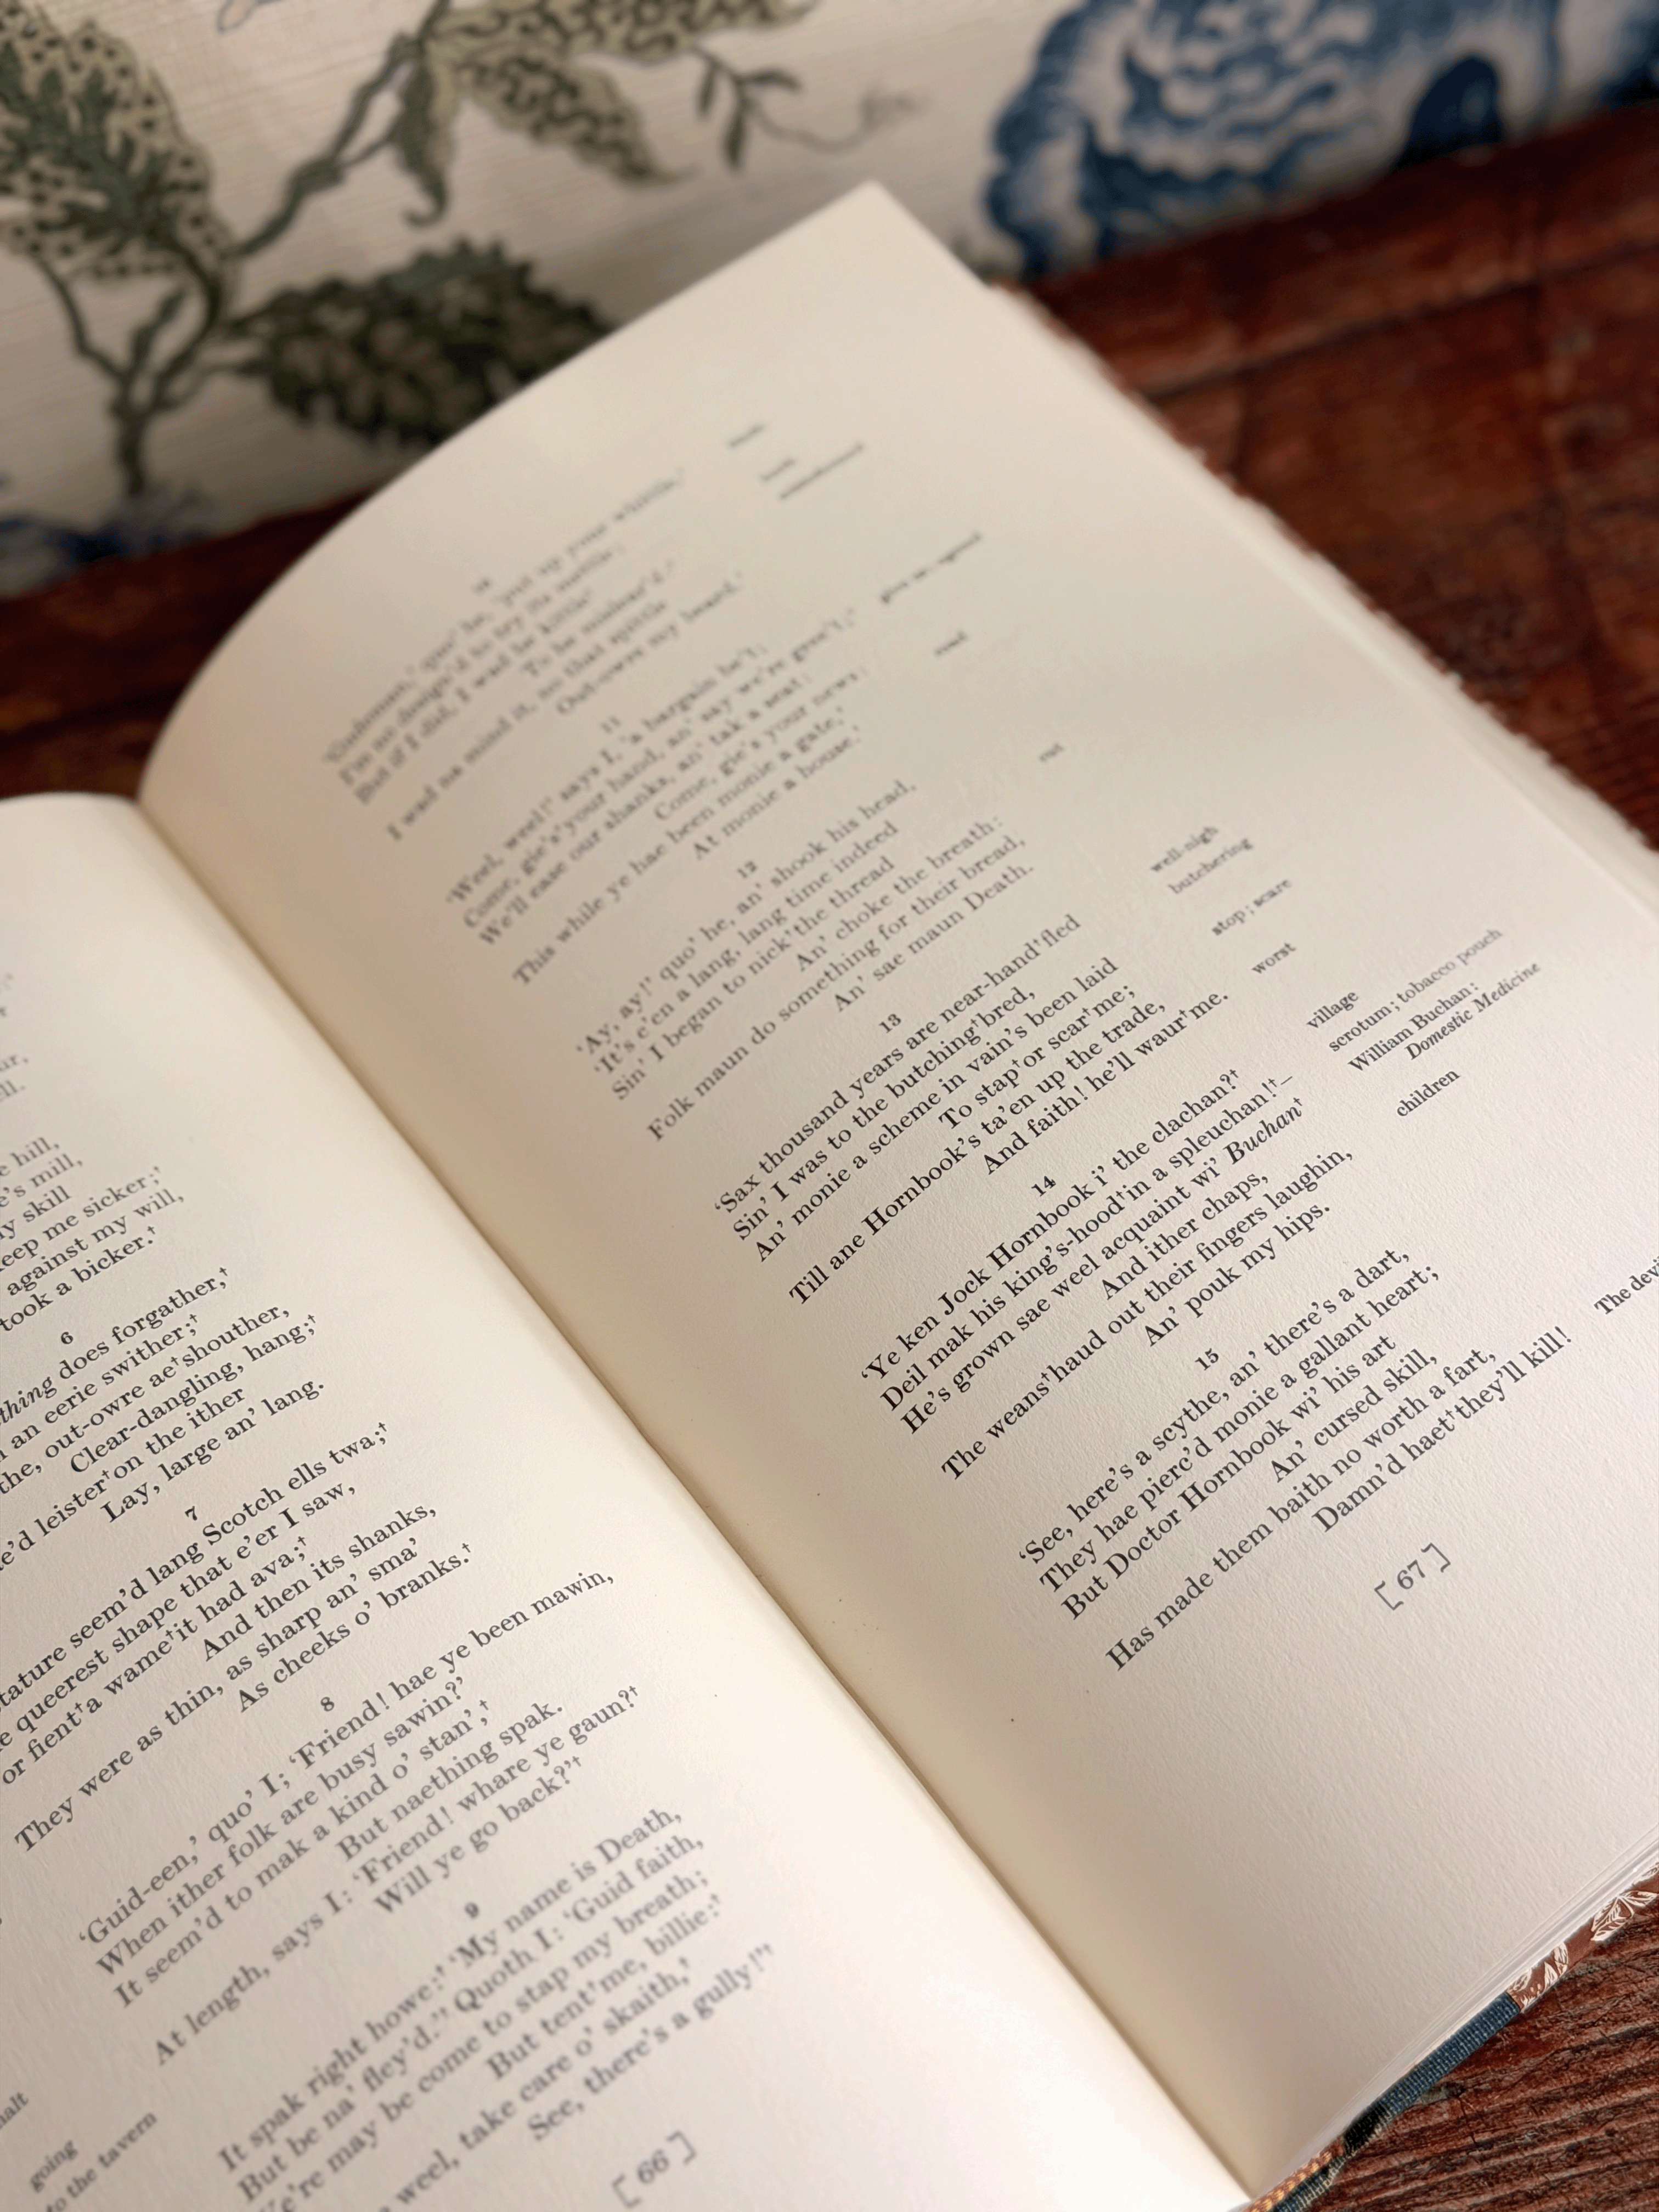 e hill,
e's mill,
y skill
eep me sicker;'
against my will,
took a bicker.†
6
thing does forgather,†
an eerie swither;†
the, out-owre ae†shouther,
Clear-dangling, hang;†
e'd leister†on the ither
Lay, large an' lang.
7
tature seem'd lang Scotch ells twa;†
e queerest shape that e'er I saw,
or fient†a wame†it had ava;†
And then its shanks,
They were as thin, as sharp an' sma'
As cheeks o' branks.†
8
'Guid-een,' quo' I; 'Friend! hae ye been mawin,
When ither folk are busy sawin?'
It seem'd to mak a kind o' stan',†
But naething spak.
At length, says I: 'Friend! whare ye gaun?†
Will ye go back?'†
9
It spak right howe:† 'My name is Death,
But be na' fley'd.'† Quoth I: 'Guid faith,
e're may be come to stap my breath;
But tent†me, billie:†
weel, take care o' skaith,†
See, there's a gully!'†
malt
going
to the tavern
[ 66 ]
'Gudeman,' quo' he, 'put up your whittle,†
I'm no design'd to try its mettle;
But if I did, I wad be kittle†
To be mislear'd:†
I wad na mind it, no that spittle
Out-owre my beard.'
11
'Weel, weel!' says I, 'a bargain be't;
Come, gie's†your hand, an' say we're gree't;†
We'll ease our shanks, an' tak a seat:
Come, gie's your news:
This while ye hae been monie a gate,†
At monie a house.'
12
'Ay, ay!' quo' he, an' shook his head,
'It's e'en a lang, lang time indeed
Sin' I began to nick†the thread
An' choke the breath:
Folk maun do something for their bread,
An' sae maun Death.
13
'Sax thousand years are near-hand†fled
Sin' I was to the butching†bred,
An' monie a scheme in vain's been laid
To stap†or scar†me;
Till ane Hornbook's ta'en up the trade,
And faith! he'll waur†me.
14
'Ye ken Jock Hornbook i' the clachan?†
Deil mak his king's-hood†in a spleuchan!†–
He's grown sae weel acquaint wi' Buchan†
And ither chaps,
The weans†haud out their fingers laughin,
An' pouk my hips.
15
'See, here's a scythe, an' there's a dart,
They hae pierc'd monie a gallant heart;
But Doctor Hornbook wi' his art
An' cursed skill,
Has made them baith no worth a fart,
Damn'd haet†they'll kill!
road
cut
well-nigh
butchering
stop; scare
worst
village
scrotum; tobacco pouch
William Buchan:
Domestic Medicine
children
The devi
[ 67 ]